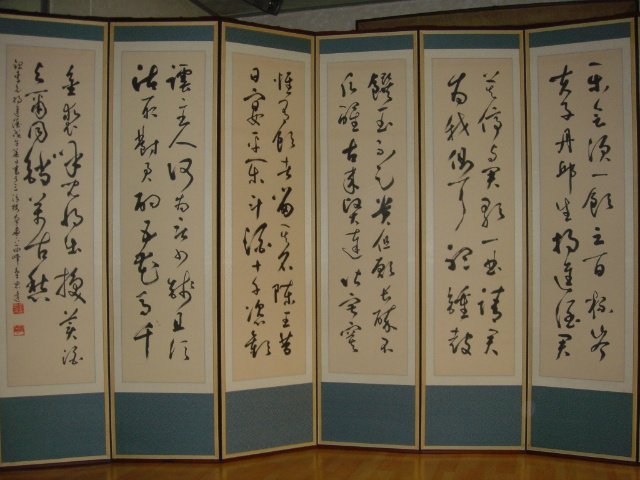 樂會須一飲三百杯岑
夫子丹邱生將進酒君
莫停與君歌一曲請君
爲我側耳聽鍾鼓
饌玉不足貴但願長醉不
醒古來賢達皆寂寞
惟有飲者留其名陳王昔
日宴平樂斗酒十千恣歡
謔主人何爲言少錢且須
沽取對君酌五花馬千
金裘呼兒將出換美酒
與爾同銷萬古愁